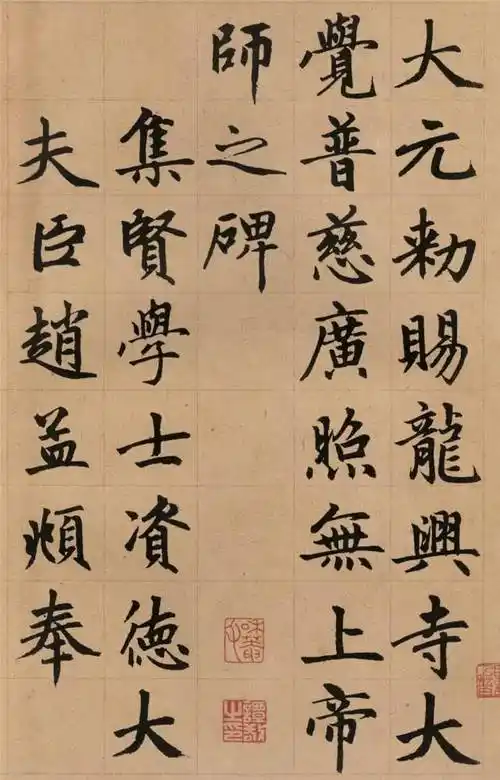 大元敕賜龍興寺大
覺普慈廣照無上帝
師之碑
集賢學士資德大
夫臣趙孟頫奉